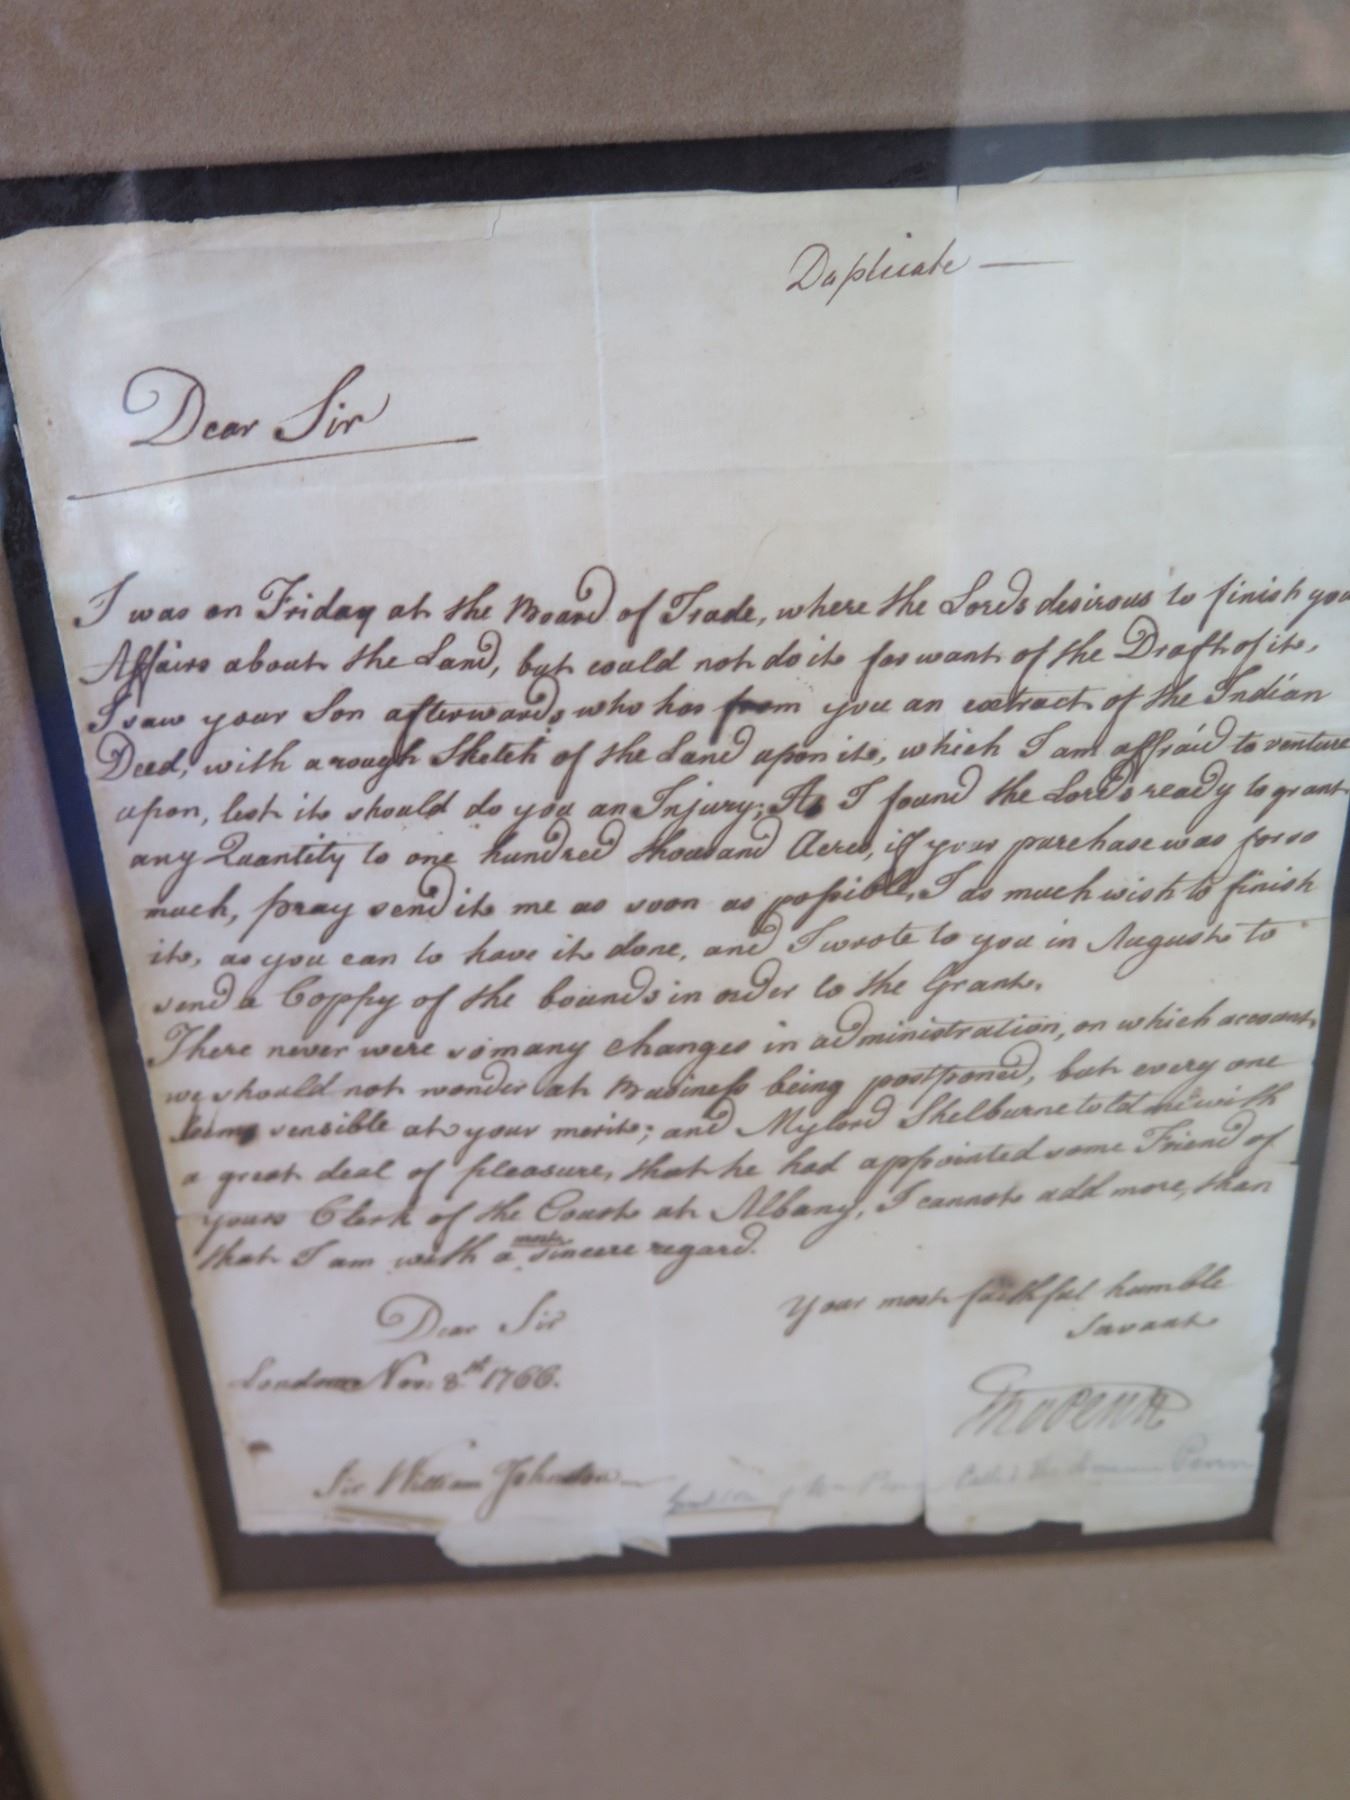 Duplicate —
Dear Sir
I was on Friday at the Board of Trade, where the Lords desirous to finish you
Affairs about the Land, but could not do it for want of the Draft of it,
I saw your Son afterwards, who has from you an extract of the Indian
Deed, with a rough Sketch of the Land upon it, which I am affraid to venture
upon, lest it should do you an Injury; As I found the Lords ready to grant
any Quantity to one hundred thousand Acres, if your purchase was for so
much, pray send it me as soon as possible, I as much wish to finish
it, as you can to have it done, and I wrote to you in August to
send a Coppy of the bounds in order to the Grant.
There never were so many changes in administration, on which account
we should not wonder at Business being postponed, but every one
seems sensible at your merit; and My lord Shelburne told me with
a great deal of pleasure, that he had appointed some Friend of
yours Clerk of the Court at Albany, I cannot add more, than
that I am with a most sincere regard.
Dear Sir
Your most faithful humble
Servant
London Nov. 8th 1766.
Tho Penn
Sir William Johnson
Penn